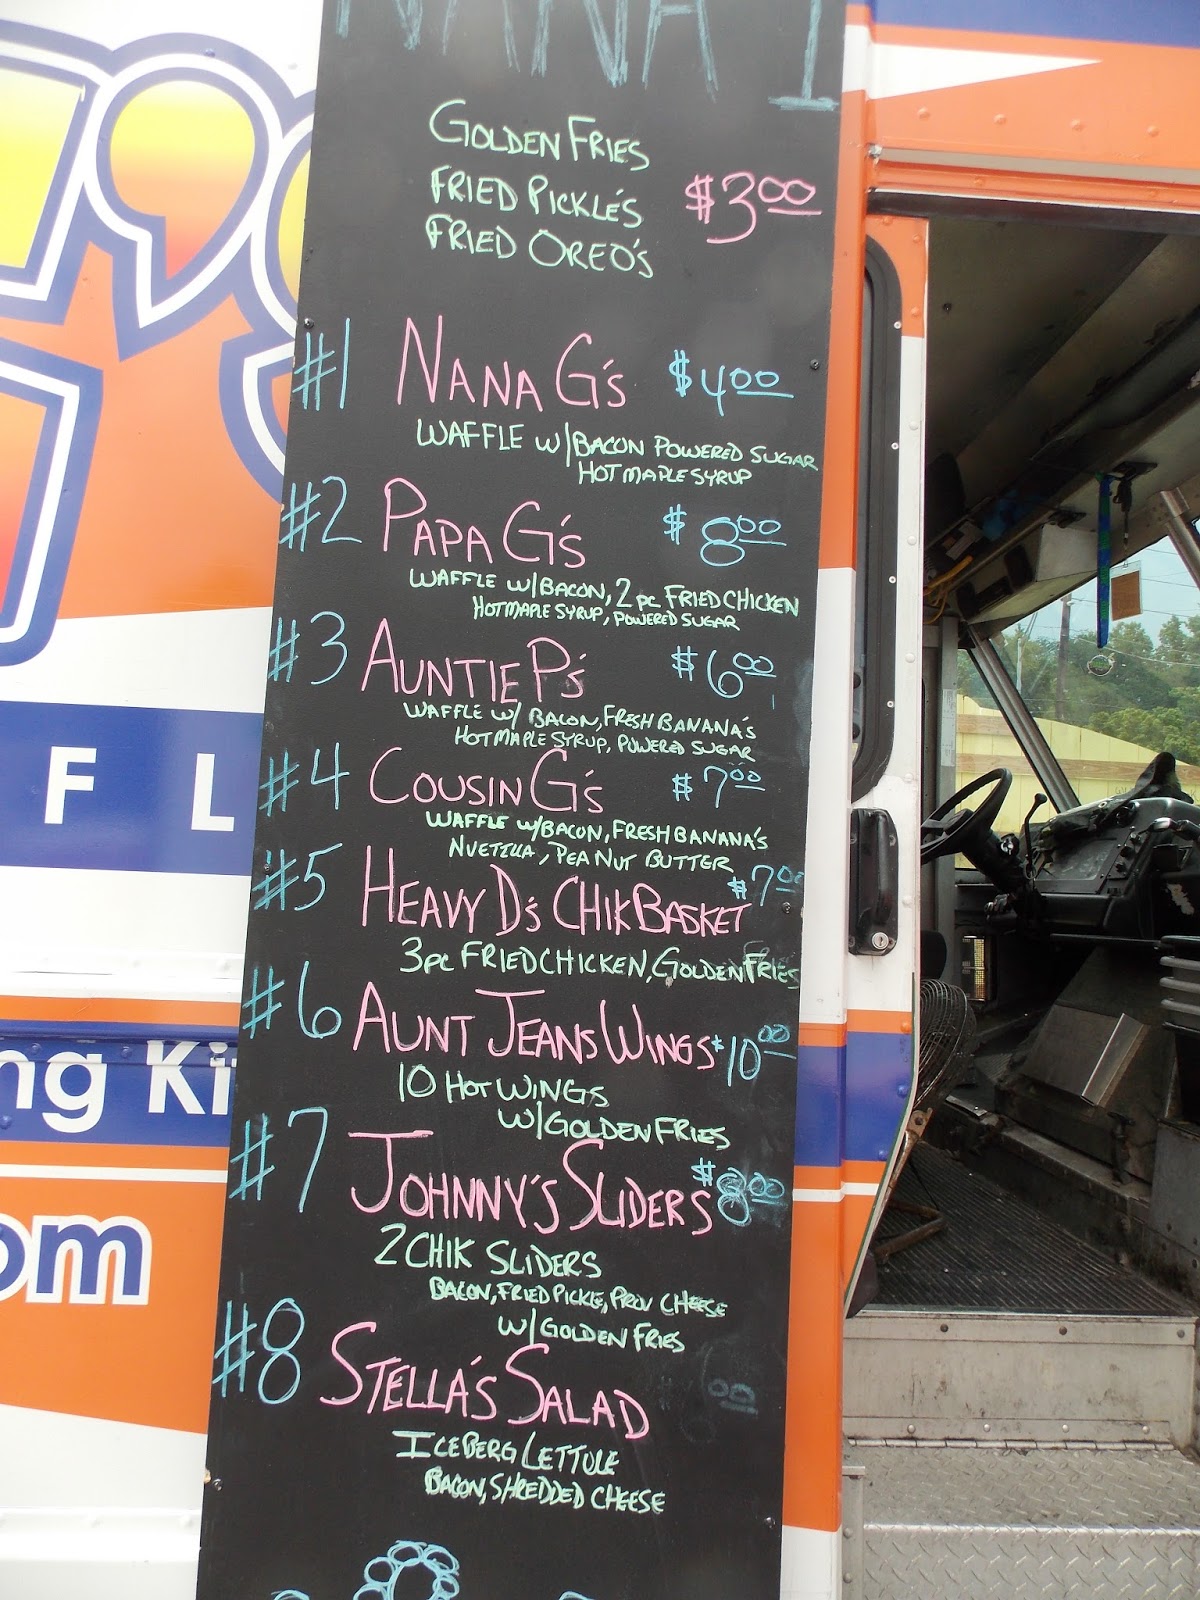 NANA
GOLDEN FRIES
FRIED PICKLE'S $3.00
FRIED OREO'S
#1 NANA G'S $4.00
WAFFLE W/BACON POWERED SUGAR
HOT MAPLE SYRUP
#2 PAPA G'S $8.00
WAFFLE W/BACON, 2 PC FRIED CHICKEN
HOT MAPLE SYRUP, POWERED SUGAR
#3 AUNTIE P'S $6.00
WAFFLE W/ BACON, FRESH BANANA'S
HOT MAPLE SYRUP, POWERED SUGAR
#4 COUSIN G'S $7.00
WAFFLE W/BACON, FRESH BANANA'S
NUETILLA, PEANUT BUTTER
#5 HEAVY D'S CHIK BASKET $7.00
3PC FRIED CHICKEN, GOLDEN FRIES
#6 AUNT JEANS WINGS $10.00
10 HOT WINGS
W/GOLDEN FRIES
#7 JOHNNY'S SLIDERS $8.00
2 CHIK SLIDERS
BACON, FRIED PICKLE, PROV CHEESE
W/GOLDEN FRIES
#8 STELLA'S SALAD 6.00
ICEBERG LETTUCE
BACON, SHREDDED CHEESE
's
F L
ng Ki
om